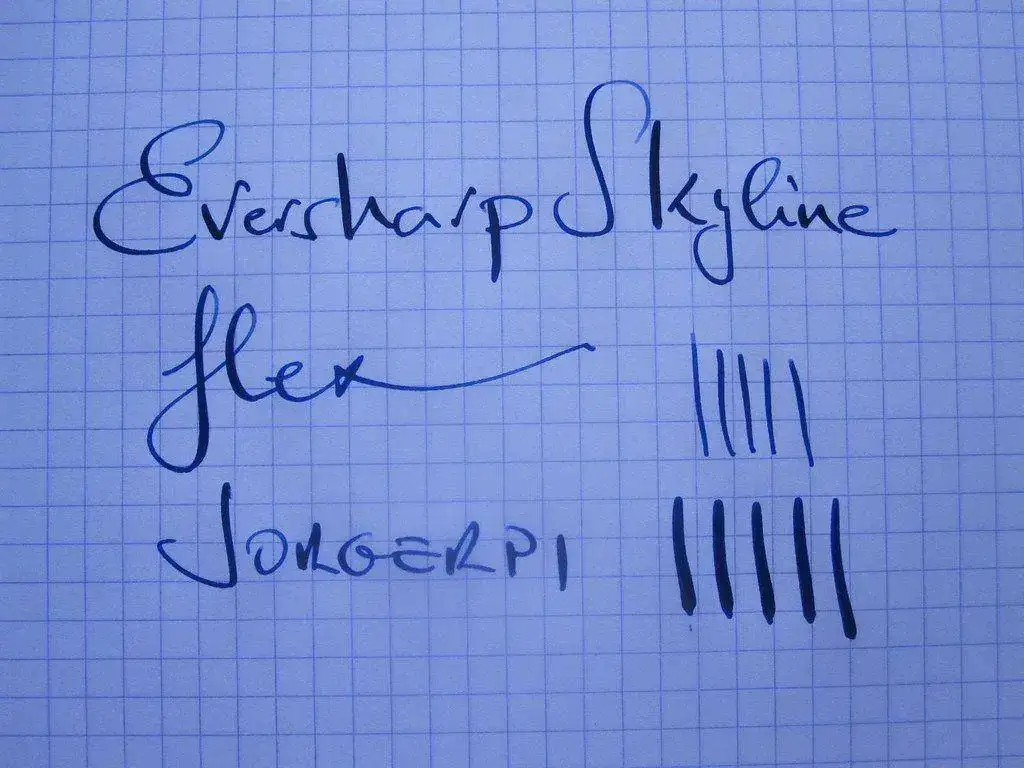 Eversharp Skyline
flex
JORGERPI